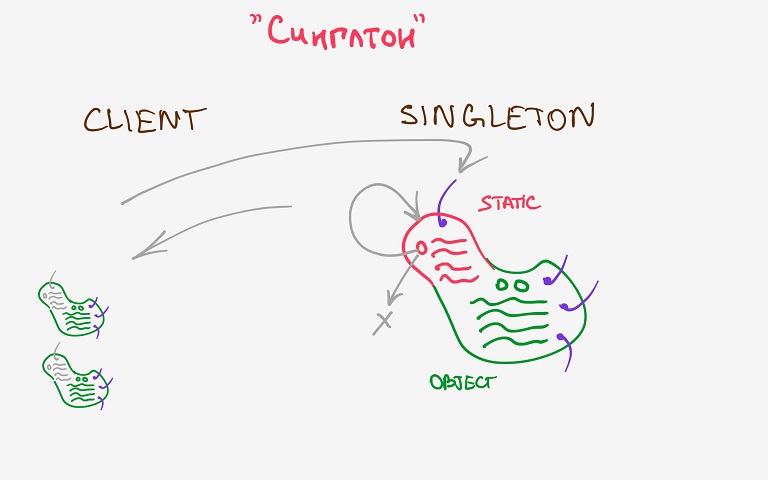 "Синглтон"
CLIENT SINGLETON
STATIC
X
OBJECT